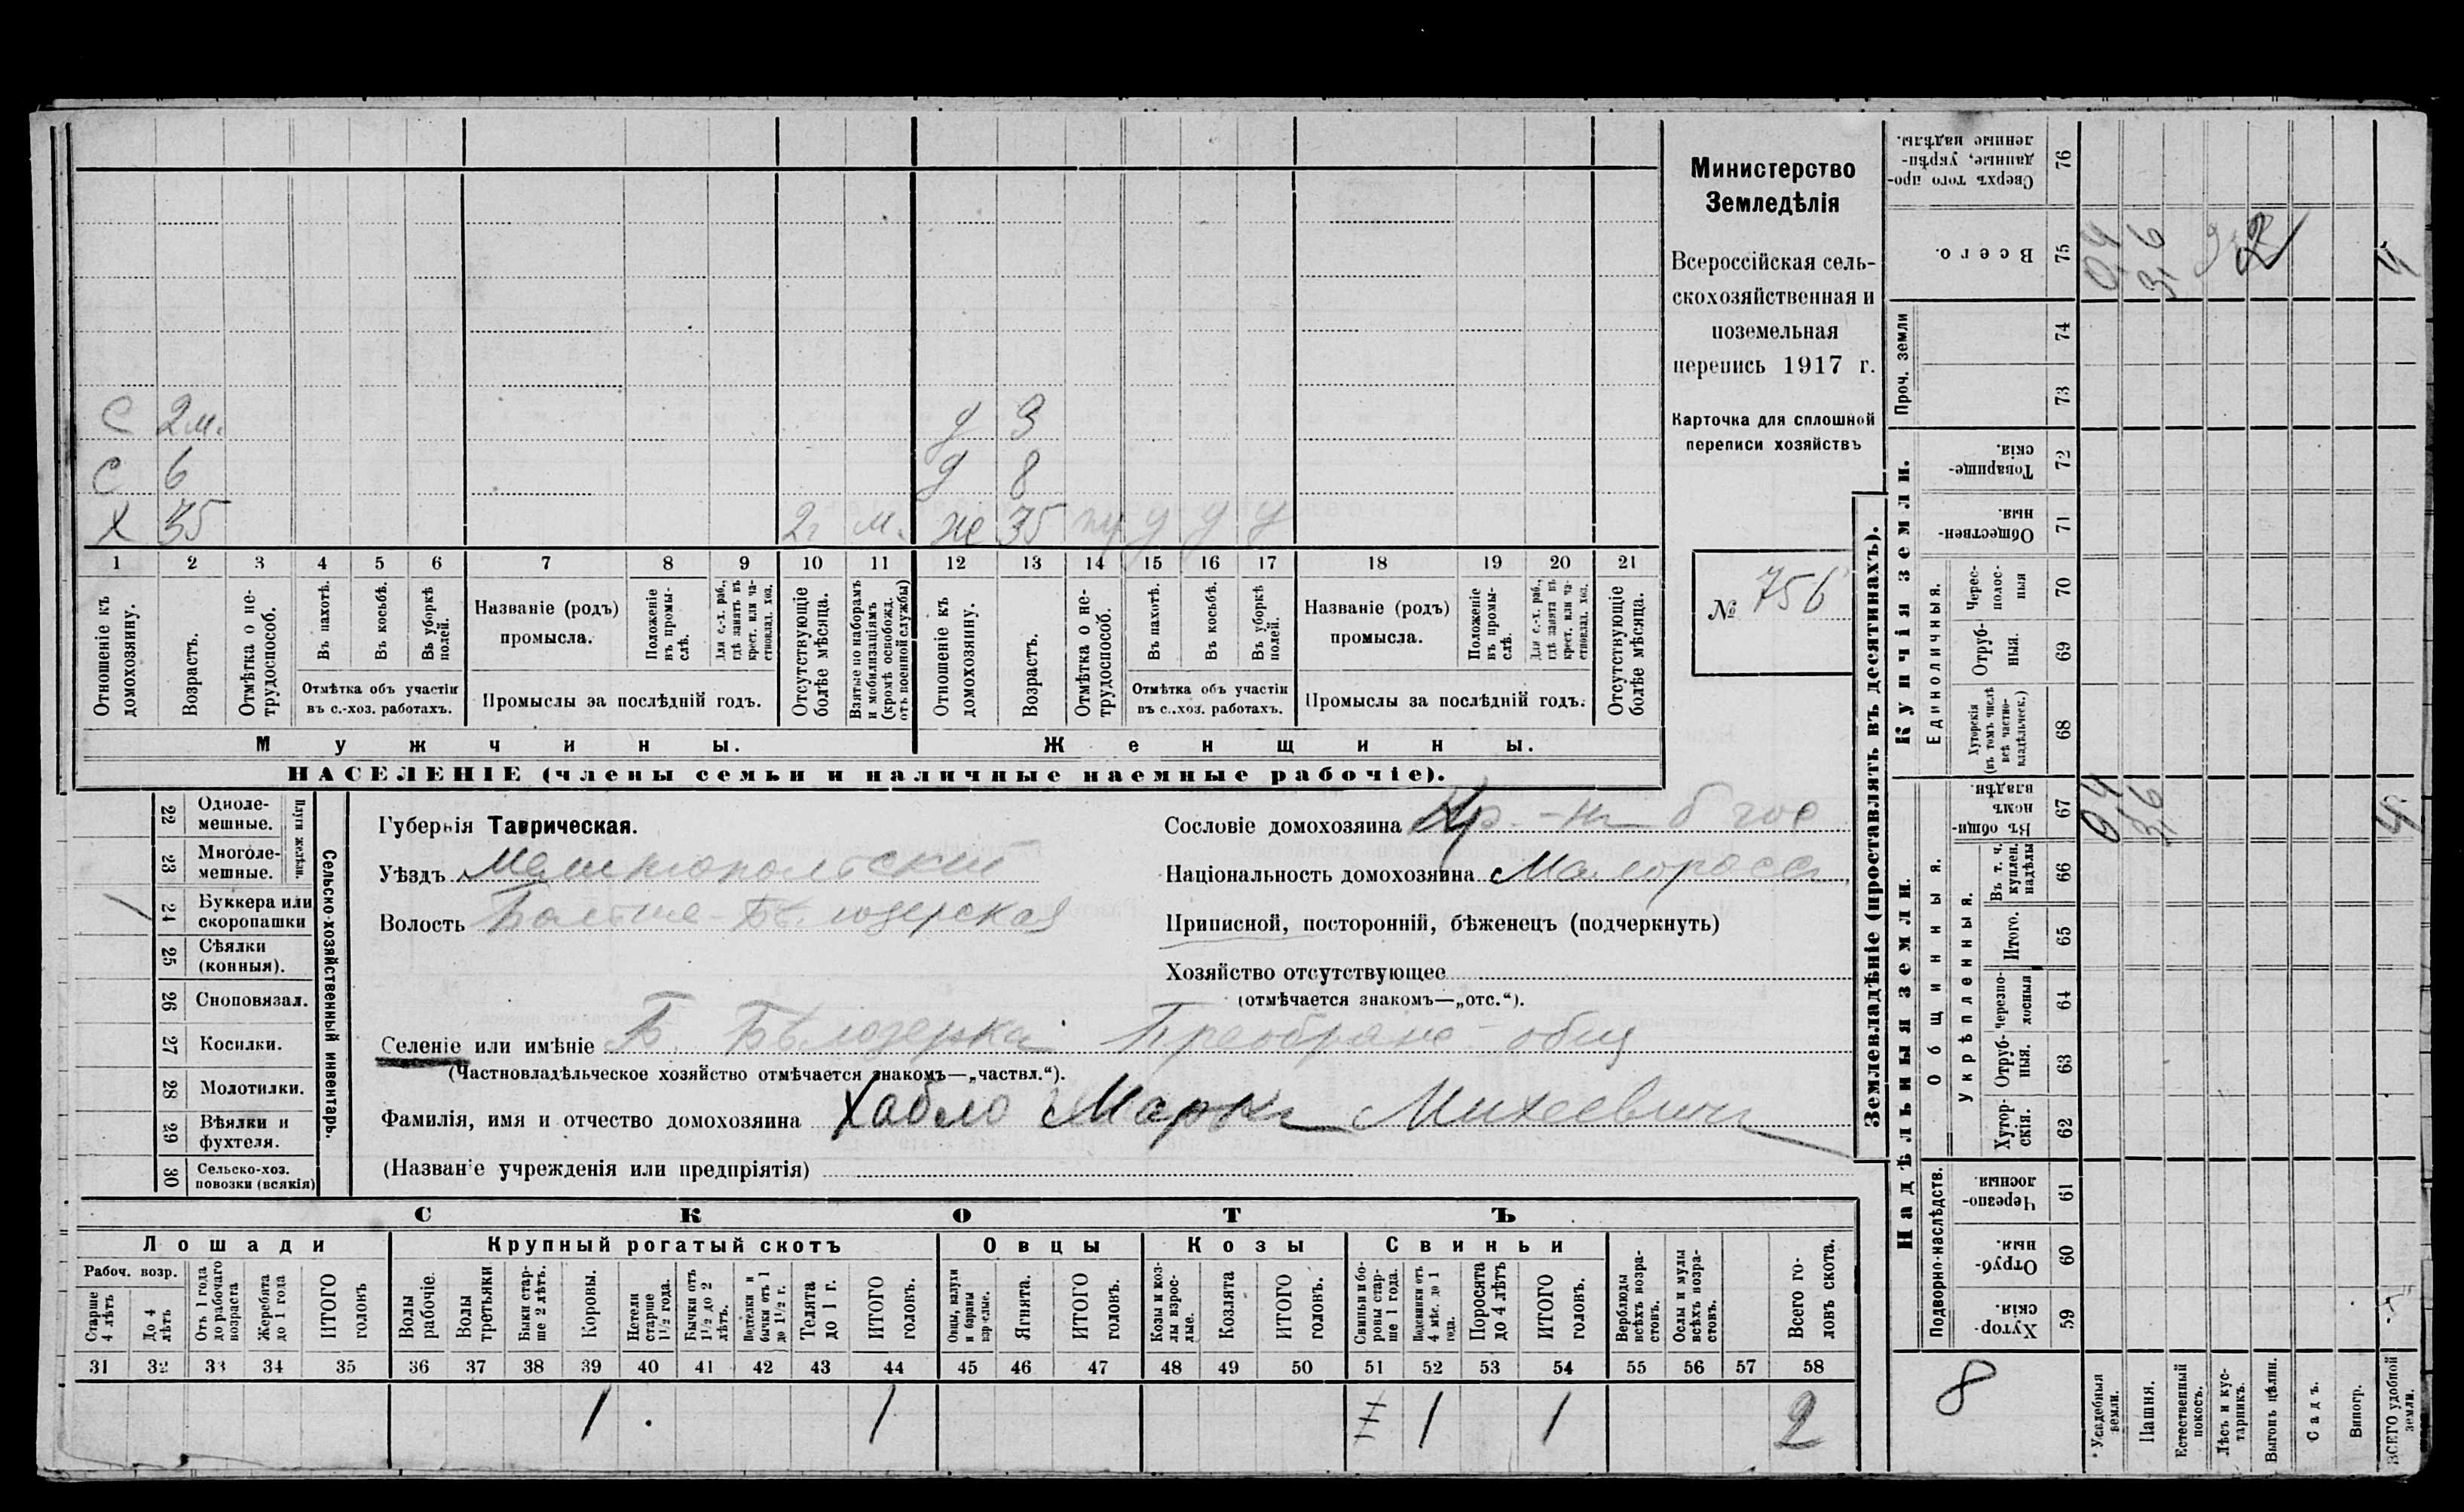 С 2м. д 3
С 6 д 8
Х 35 2г м. же 35 у у у
1 2 3 4 5 6 7 8 9 10 11 12 13 14 15 16 17 18 19 20 21
Отношеніе къ домохозяину.
Возрастъ.
Отмѣтка о не-трудоспособ.
Въ пахотѣ.
Въ косьбѣ.
Въ уборкѣ полей.
Отмѣтка объ участіи
въ с.-хоз. работахъ.
Названіе (родъ)
промысла.
Положеніе въ промы-слѣ.
Для с.-х. раб., гдѣ занятъ въ крест. или ча-стновлад. хоз.
Промыслы за послѣдній годъ.
Отсутствующіе болѣе мѣсяца.
Взятые по наборамъ и мобилизаціямъ (кромѣ освобожд. отъ военной службы)
Отношеніе къ домохозяину.
Возрастъ.
Отмѣтка о не-трудоспособ.
Въ пахотѣ.
Въ косьбѣ.
Въ уборкѣ полей.
Отмѣтка объ участіи
въ с.-хоз. работахъ.
Названіе (родъ)
промысла.
Положеніе въ промы-слѣ.
Для с.-х. раб., гдѣ занята въ крест. или ча-стновлад. хоз.
Промыслы за послѣдній годъ.
Отсутствующіе болѣе мѣсяца.
Мужчины. Женщины.
НАСЕЛЕНІЕ (члены семьи и наличные наемные рабочіе).
Министерство
Земледѣлія
Всероссійская сель-
скохозяйственная и
поземельная
перепись 1917 г.
Карточка для сплошной
переписи хозяйствъ
№ 756
Сельско-хозяйственный инвентарь.
Плуги желѣзн.
22 Одноле-мешные.
23 Многоле-мешные.
24 Буккера или скоропашки
25 Сѣялки (конныя).
26 Сноповязал.
27 Косилки.
28 Молотилки.
29 Вѣялки и фухтеля.
30 Сельско-хоз. повозки (всякія)
Губернія Таврическая.
Уѣздъ Мелитопольскій
Волость Больше-Бѣлозерская
Сословіе домохозяина Кр.-нъ б гос
Національность домохозяина Малороссъ
Приписной, посторонній, бѣженецъ (подчеркнуть)
Хозяйство отсутствующее
(отмѣчается знакомъ—„отс.“).
Селеніе или имѣніе Б. Бѣлозерка Преображ- общ
(Частновладѣльческое хозяйство отмѣчается знакомъ—„частвл.“).
Фамилія, имя и отчество домохозяина Хабло Маркъ Михеевичъ
(Названіе учрежденія или предпріятія)
СКОТЪ
Лошади Крупный рогатый скотъ Овцы Козы Свиньи
Рабоч. возр.
Старше 4 лѣтъ
До 4 лѣтъ
Отъ 1 года до рабочаго возраста
Жеребята до 1 года
ИТОГО головъ
Волы рабочіе.
Волы третьяки.
Быки стар-ше 2 лѣтъ.
Коровы.
Нетели старше 1½ года.
Бычки отъ 1½ до 2 лѣтъ.
Подтелки и бычки отъ 1 до 1½ г.
Телята до 1 г.
ИТОГО головъ.
Овцы, валухи и бараны взрослые.
Ягнята.
ИТОГО головъ.
Козы и коз-лы взрос-лые.
Козлята
ИТОГО головъ.
Свиньи и бо-ровы стар-ше 1 года.
Подсвинки отъ 4 мѣс. до 1 года.
Поросята до 4 лѣтъ
ИТОГО головъ.
Верблюды всѣхъ возра-стовъ.
Ослы и мулы всѣхъ возра-стовъ.
Всего го-ловъ скота.
31 32 33 34 35 36 37 38 39 40 41 42 43 44 45 46 47 48 49 50 51 52 53 54 55 56 57 58
1 1 1 1 2
Землевладѣніе (проставлять въ десятинахъ).
Надѣльныя земли.
Подворно-наслѣдств.
Хутор-скія. 59
Отруб-ныя. 60
Черезпо-лосныя. 61
Общинныя.
Укрѣпленныя.
Хутор-скія. 62
Отруб-ныя. 63
Черезпо-лосныя 64
Итого. 65
Въ т. ч. куплен. надѣлы 66
Въ общин-номъ владѣн. 67
0,4 3,6 4
Купчія земли.
Единоличныя.
Хуторскія (въ томъ числѣ всѣ частно-владѣльческ.) 68
Отруб-ныя. 69
Черес-полос-ныя 70
Обществен-ныя. 71
Товарище-скія. 72
Проч. земли
73 74
Всего. 75
0,4 3,6 2 4
Сверхъ того про-данные, укрѣп-ленные надѣлы. 76
8
Усадебныя земли.
Пашня.
Естественный покосъ.
Лѣсъ и кус-тарникъ.
Выгонъ цѣлин.
Садъ.
Виногр.
ВСЕГО удобной земли.